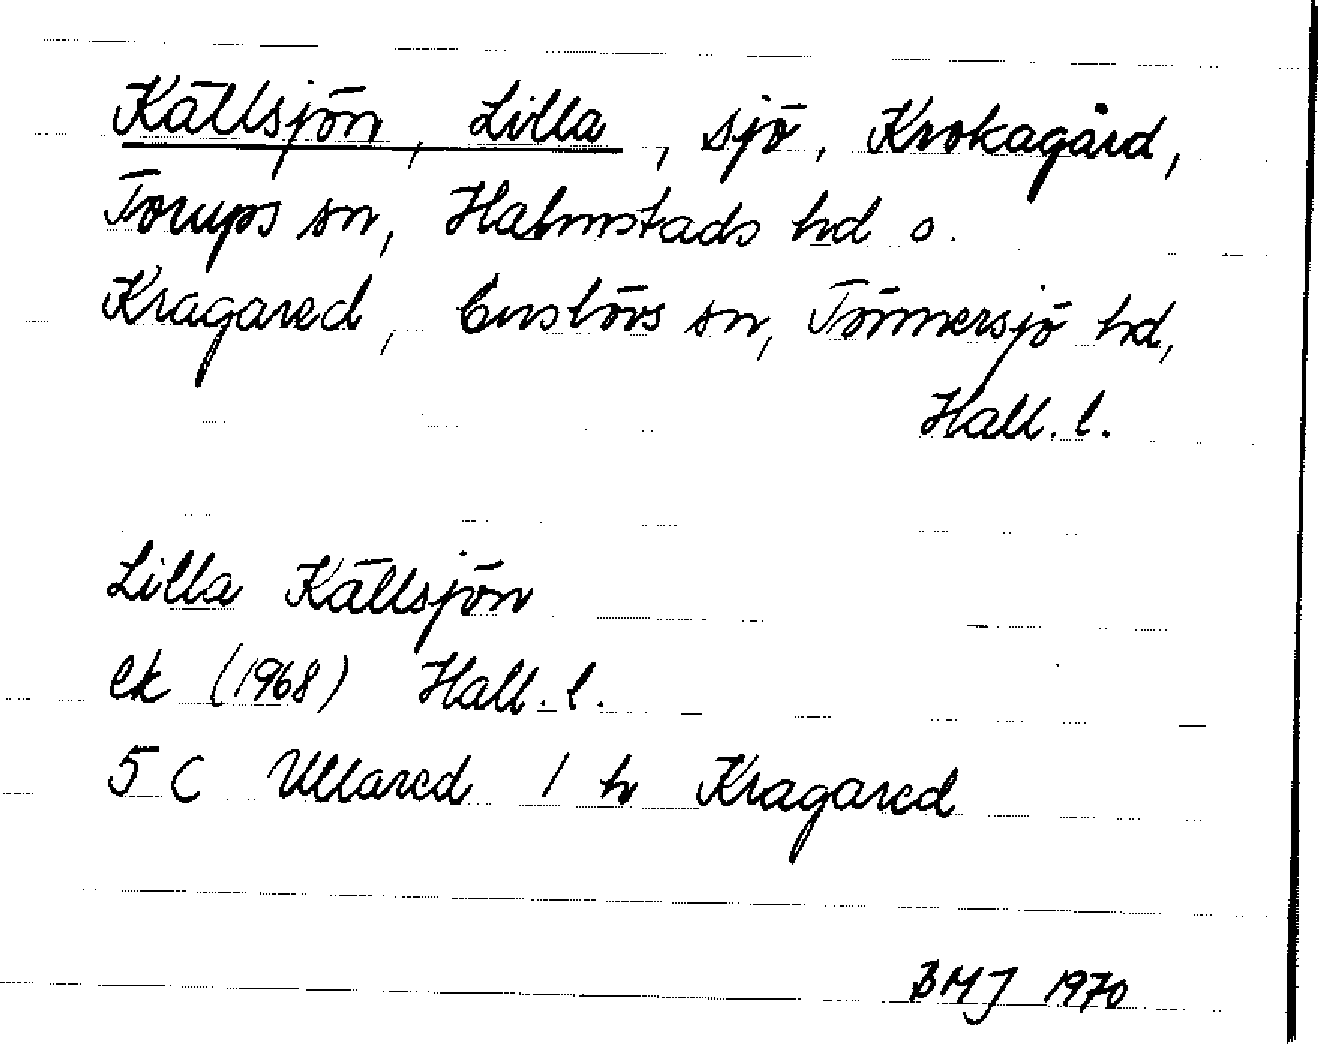 Källsjön, Lilla, sjö, Krokagård,
Torups sn, Halmstads hd o.
Kragared, Enslövs sn, Tönnersjö hd,
Hall. l.
Lilla Källsjön
ek (1968) Hall. l.
5 C Ullared 1 h Kragared
BMJ 1970